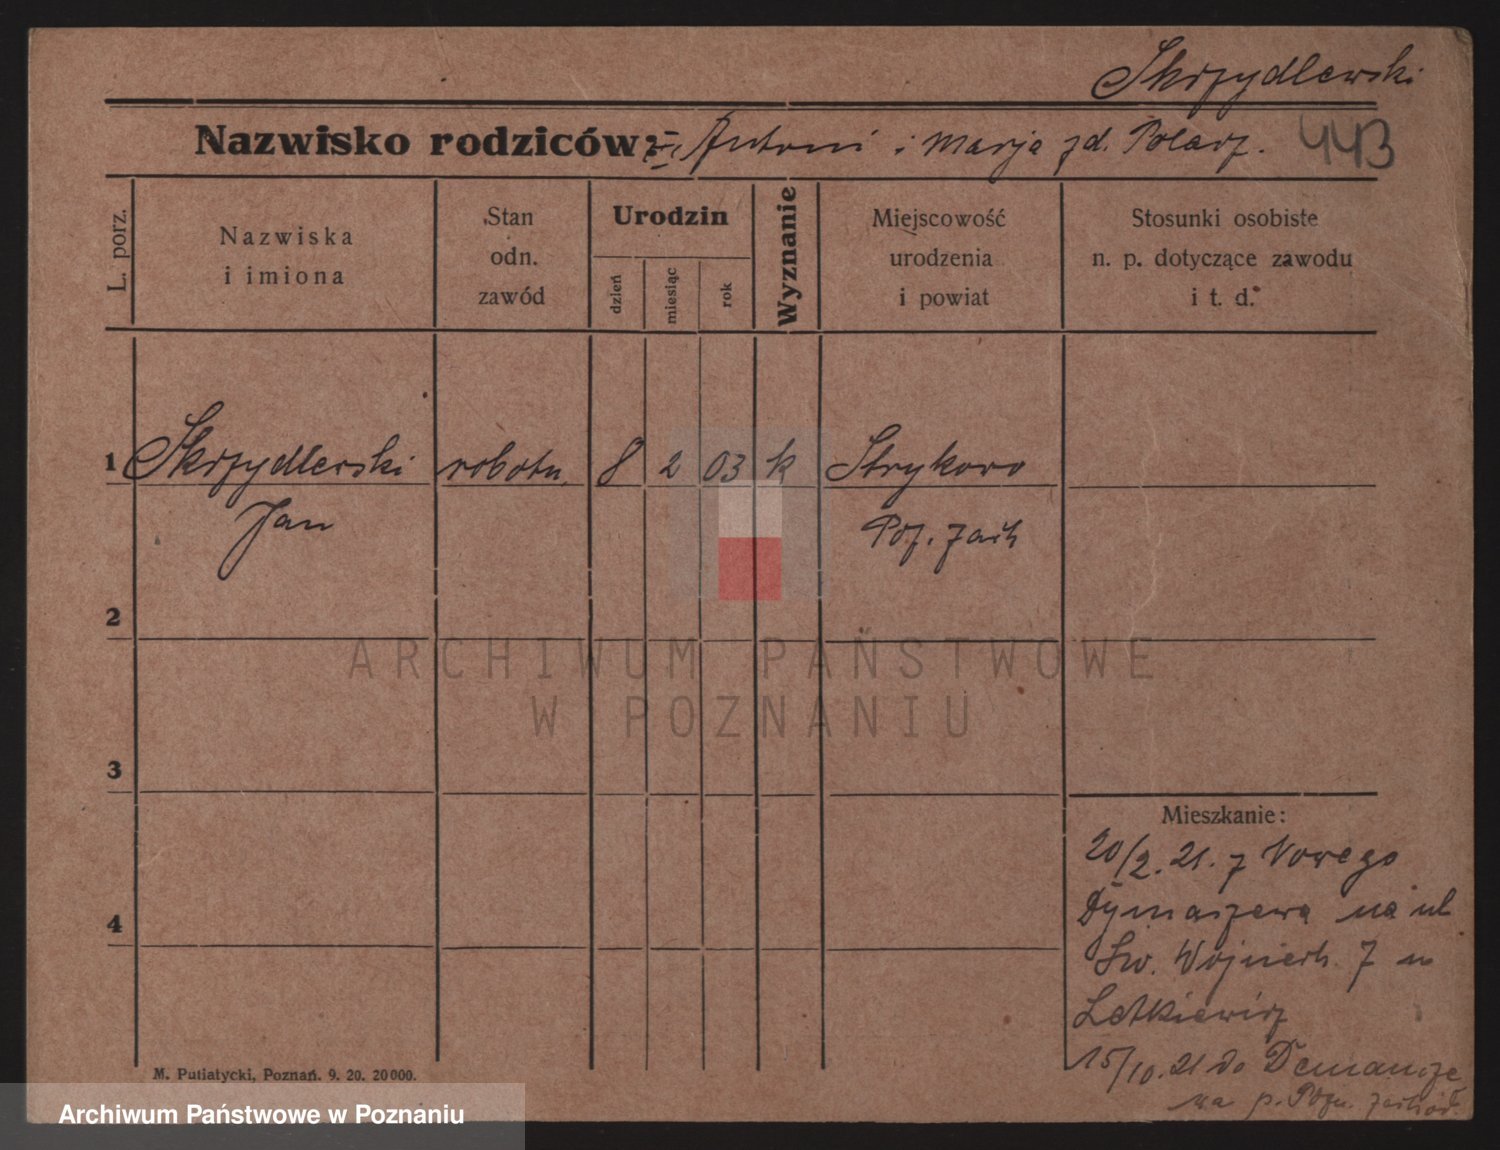 Skrzydlewski
Nazwisko rodziców: Antoni i Marja zd. Polarz. 443
L. porz.
Nazwiska
i imiona
Stan
odn.
zawód
Urodzin
dzień
miesiąc
rok
Wyznanie
Miejscowość
urodzenia
i powiat
Stosunki osobiste
n. p. dotyczące zawodu
i t. d.
1 Skrzydlewski robotn. 8 2 03 k Strykowo
Jan Poz. zach
2
ARCHIWUM PAŃSTWOWE
W POZNANIU
3
Mieszkanie:
20/2. 21. z Nowego
Dymaszewa na ul
4
Św. Wojciech. 7 u
Letkiewicz
15/10. 21 do
na p. Pozn. zachod.
M. Putiatycki, Poznań. 9. 20. 20000.
Archiwum Państwowe w Poznaniu